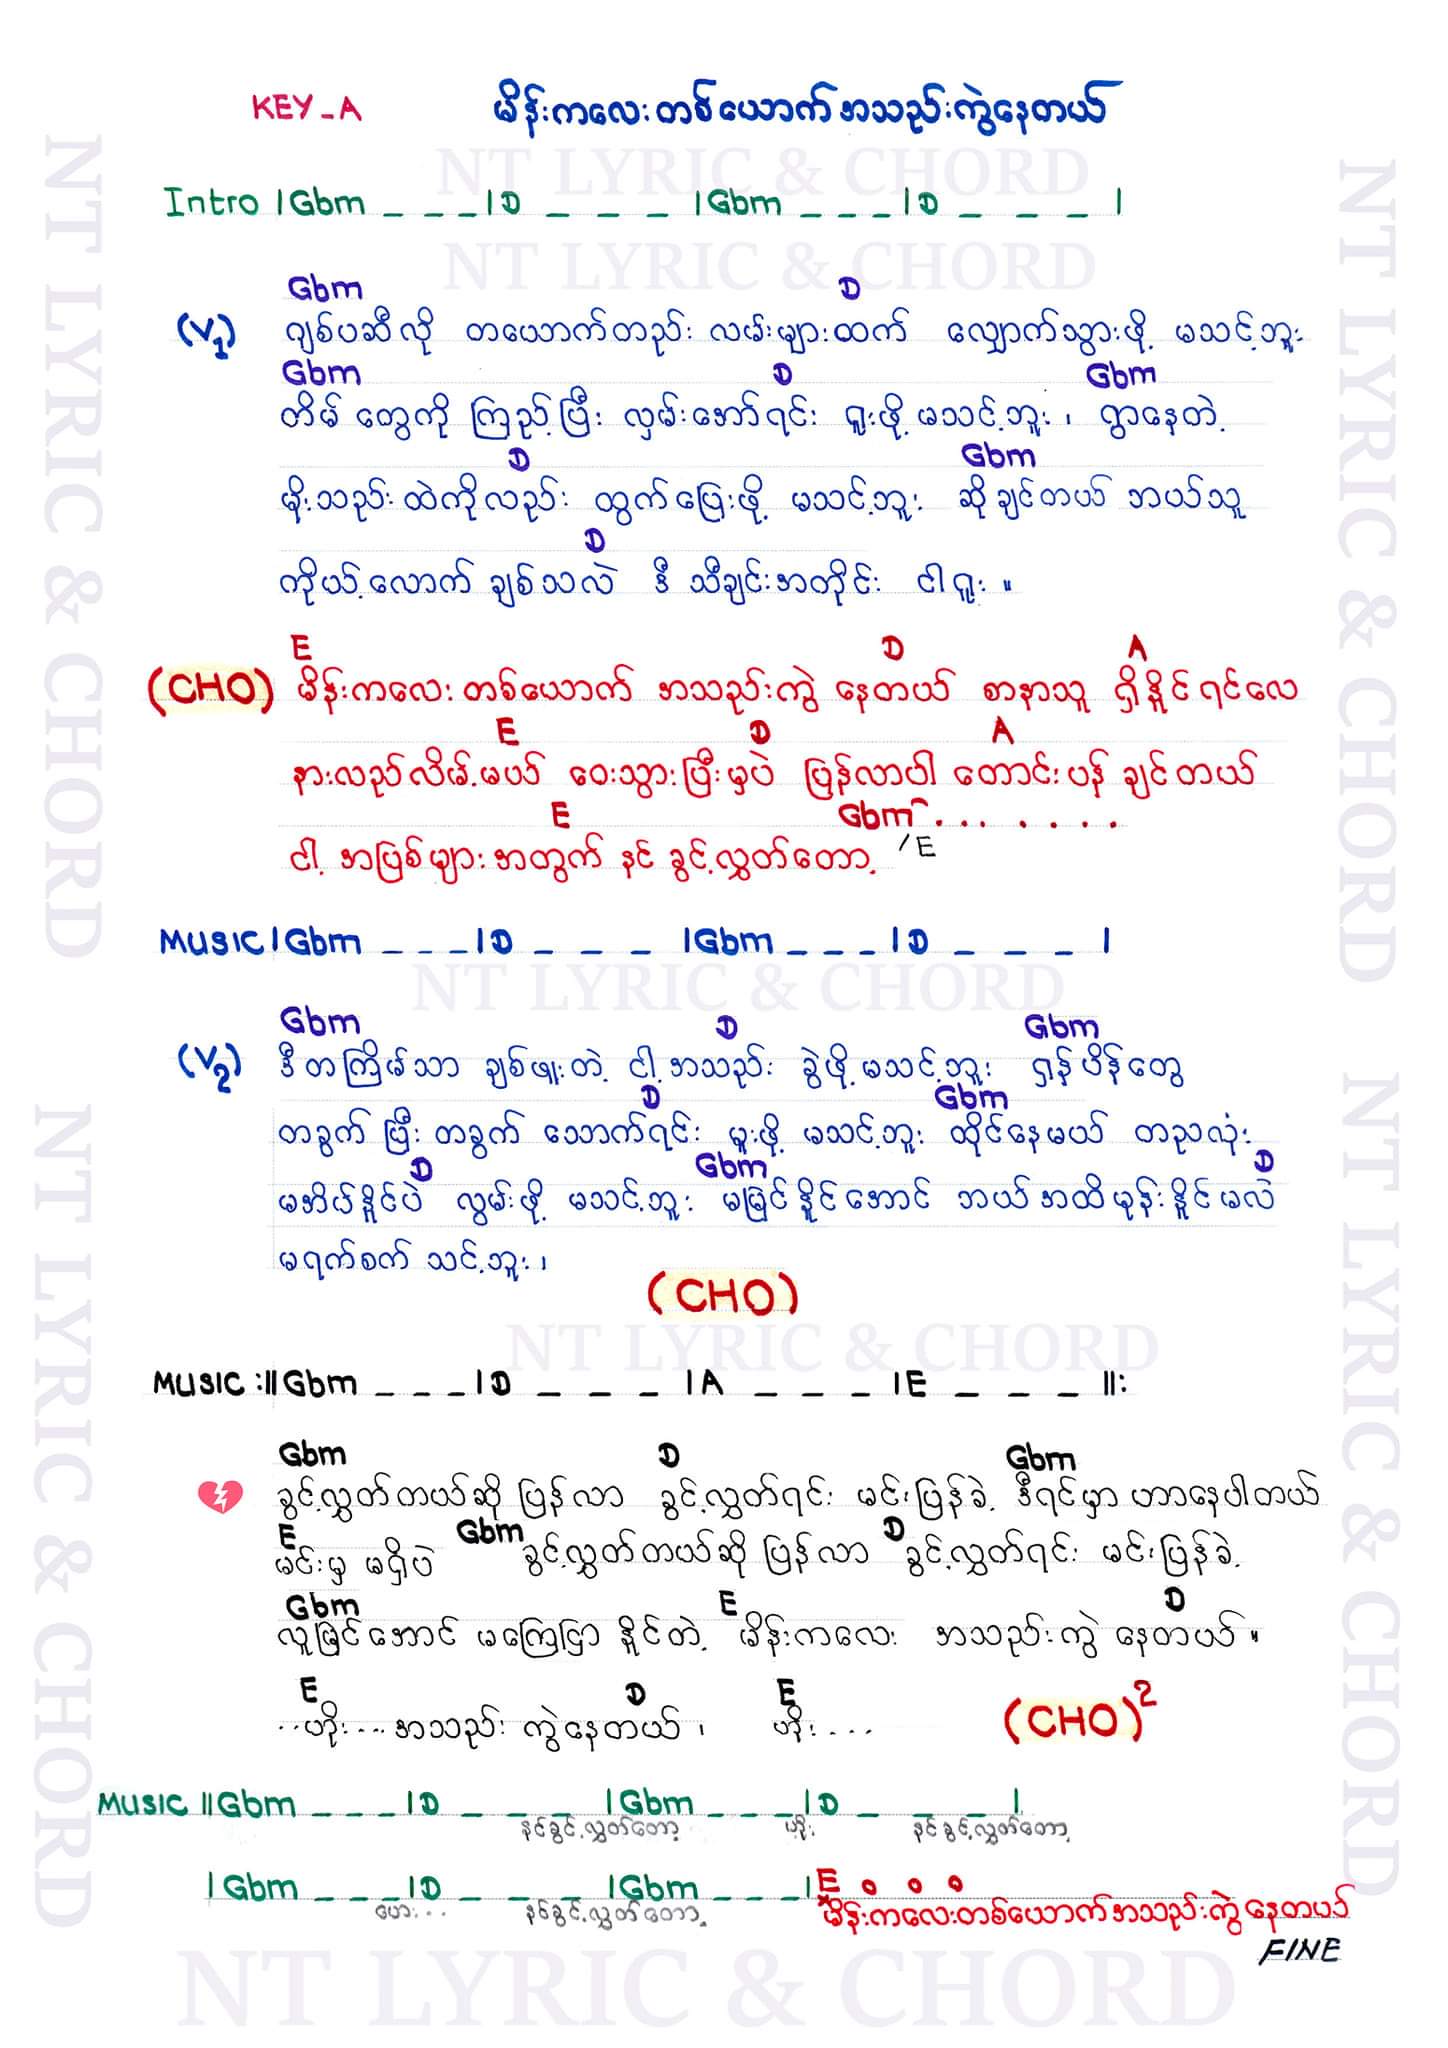 KEY_A မိန်းကလေးတစ်ယောက်အသည်းကွဲနေတယ်
NT LYRIC & CHORD
Intro |Gbm _ _ _|D _ _ _ |Gbm _ _ _|D _ _ _|
NT LYRIC & CHORD
Gbm D
(V1) ဂျစ်ပဆီလို တယောက်တည်း လမ်းများထက် လျှောက်သွားဖို့ မသင့်ဘူး
Gbm D Gbm
တိမ်တွေကို ကြည့်ပြီး လှမ်းအော်ရင်း ရူးဖို့ မသင့်ဘူး ၊ ရွာနေတဲ့
D Gbm
မိုးသည်းထဲကိုလည်း ထွက်ပြေးဖို့ မသင့်ဘူး ဆိုချင်တယ် ဘယ်သူ
D
ကိုယ့်လောက် ချစ်သလဲ ဒီ သီချင်းအတိုင်း ငါရူး ။
E D A
(CHO) မိန်းကလေးတစ်ယောက် အသည်းကွဲ နေတယ် စာနာသူ ရှိနိုင်ရင်လေ
E D A
နားလည်လိမ့်မယ် ဝေးသွားပြီးမှပဲ ပြန်လာပါ တောင်းပန် ချင်တယ်
E Gbm . . . . . . .
ငါ့ အပြစ်များအတွက် နင် ခွင့်လွှတ်တော့ /E
MUSIC|Gbm _ _ _|D _ _ _ |Gbm _ _ _|D _ _ _|
NT LYRIC & CHORD
Gbm D Gbm
(V2) ဒီတကြိမ်သာ ချစ်ဖူးတဲ့ ငါ့အသည်း ခွဲဖို့မသင့်ဘူး ရှန်ပိန်တွေ
D Gbm
တခွက်ပြီးတခွက် သောက်ရင်း မူးဖို့ မသင့်ဘူး ထိုင်နေမယ် တညလုံး
D Gbm D
မအိပ်နိုင်ပဲ လွမ်းဖို့ မသင့်ဘူး မမြင်နိုင်အောင် ဘယ်အထိမုန်းနိုင်မလဲ
မရက်စက် သင့်ဘူး ၊
(CHO)
NT LYRIC & CHORD
MUSIC :||Gbm _ _ _|D _ _ _ |A _ _ _ |E _ _ _ ||:
Gbm D Gbm
ခွင့်လွှတ်တယ်ဆို ပြန်လာ ခွင့်လွှတ်ရင်း မင်းပြန်ခဲ့ ဒီရင်မှာဟာနေပါတယ်
E Gbm D
မင်းမှ မရှိပဲ ခွင့်လွှတ်တယ်ဆို ပြန်လာ ခွင့်လွှတ်ရင်း မင်းပြန်ခဲ့
Gbm E D
လူမြင်အောင် မကြေငြာ နိုင်တဲ့ မိန်းကလေး အသည်းကွဲ နေတယ် ။
E D E
..ဟိုး... အသည်း ကွဲနေတယ် ၊ ဟိုး ... (CHO)2
MUSIC ||Gbm _ _ _|D _ _ _ |Gbm _ _ _|D _ _ _|
နင်ခွင့်လွှတ်တော့ ဟိုး နင်ခွင့်လွှတ်တော့
|Gbm _ _ _|D _ _ _ |Gbm _ _ _|E
ဟေး... နင်ခွင့်လွှတ်တော့ မိန်းကလေးတစ်ယောက်အသည်းကွဲနေတယ်
FINE
NT LYRIC & CHORD
NT LYRIC & CHORD
NT LYRIC & CHORD
NT LYRIC & CHORD
NT LYRIC & CHORD